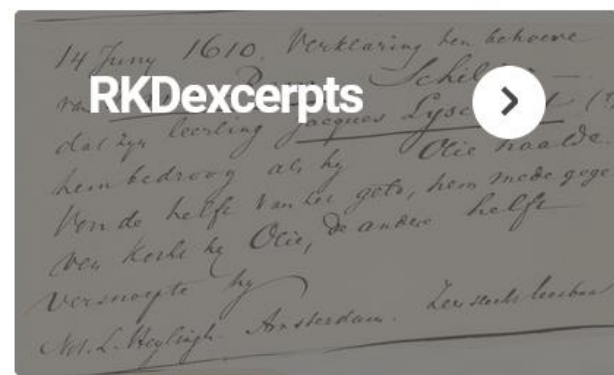 14 Juny 1610. Verklaring ten behoeve
RKDexcerpts
Schilder
dat zyn leerling Jacques
hem bedroog als hy Olie haalde.
Von de helft van het geld, hem mede gege
ven kocht hy Olie, de andere helft
versnoepte hy
Not. L. Heylingh. Amsterdam. Zeer slecht leesbaar